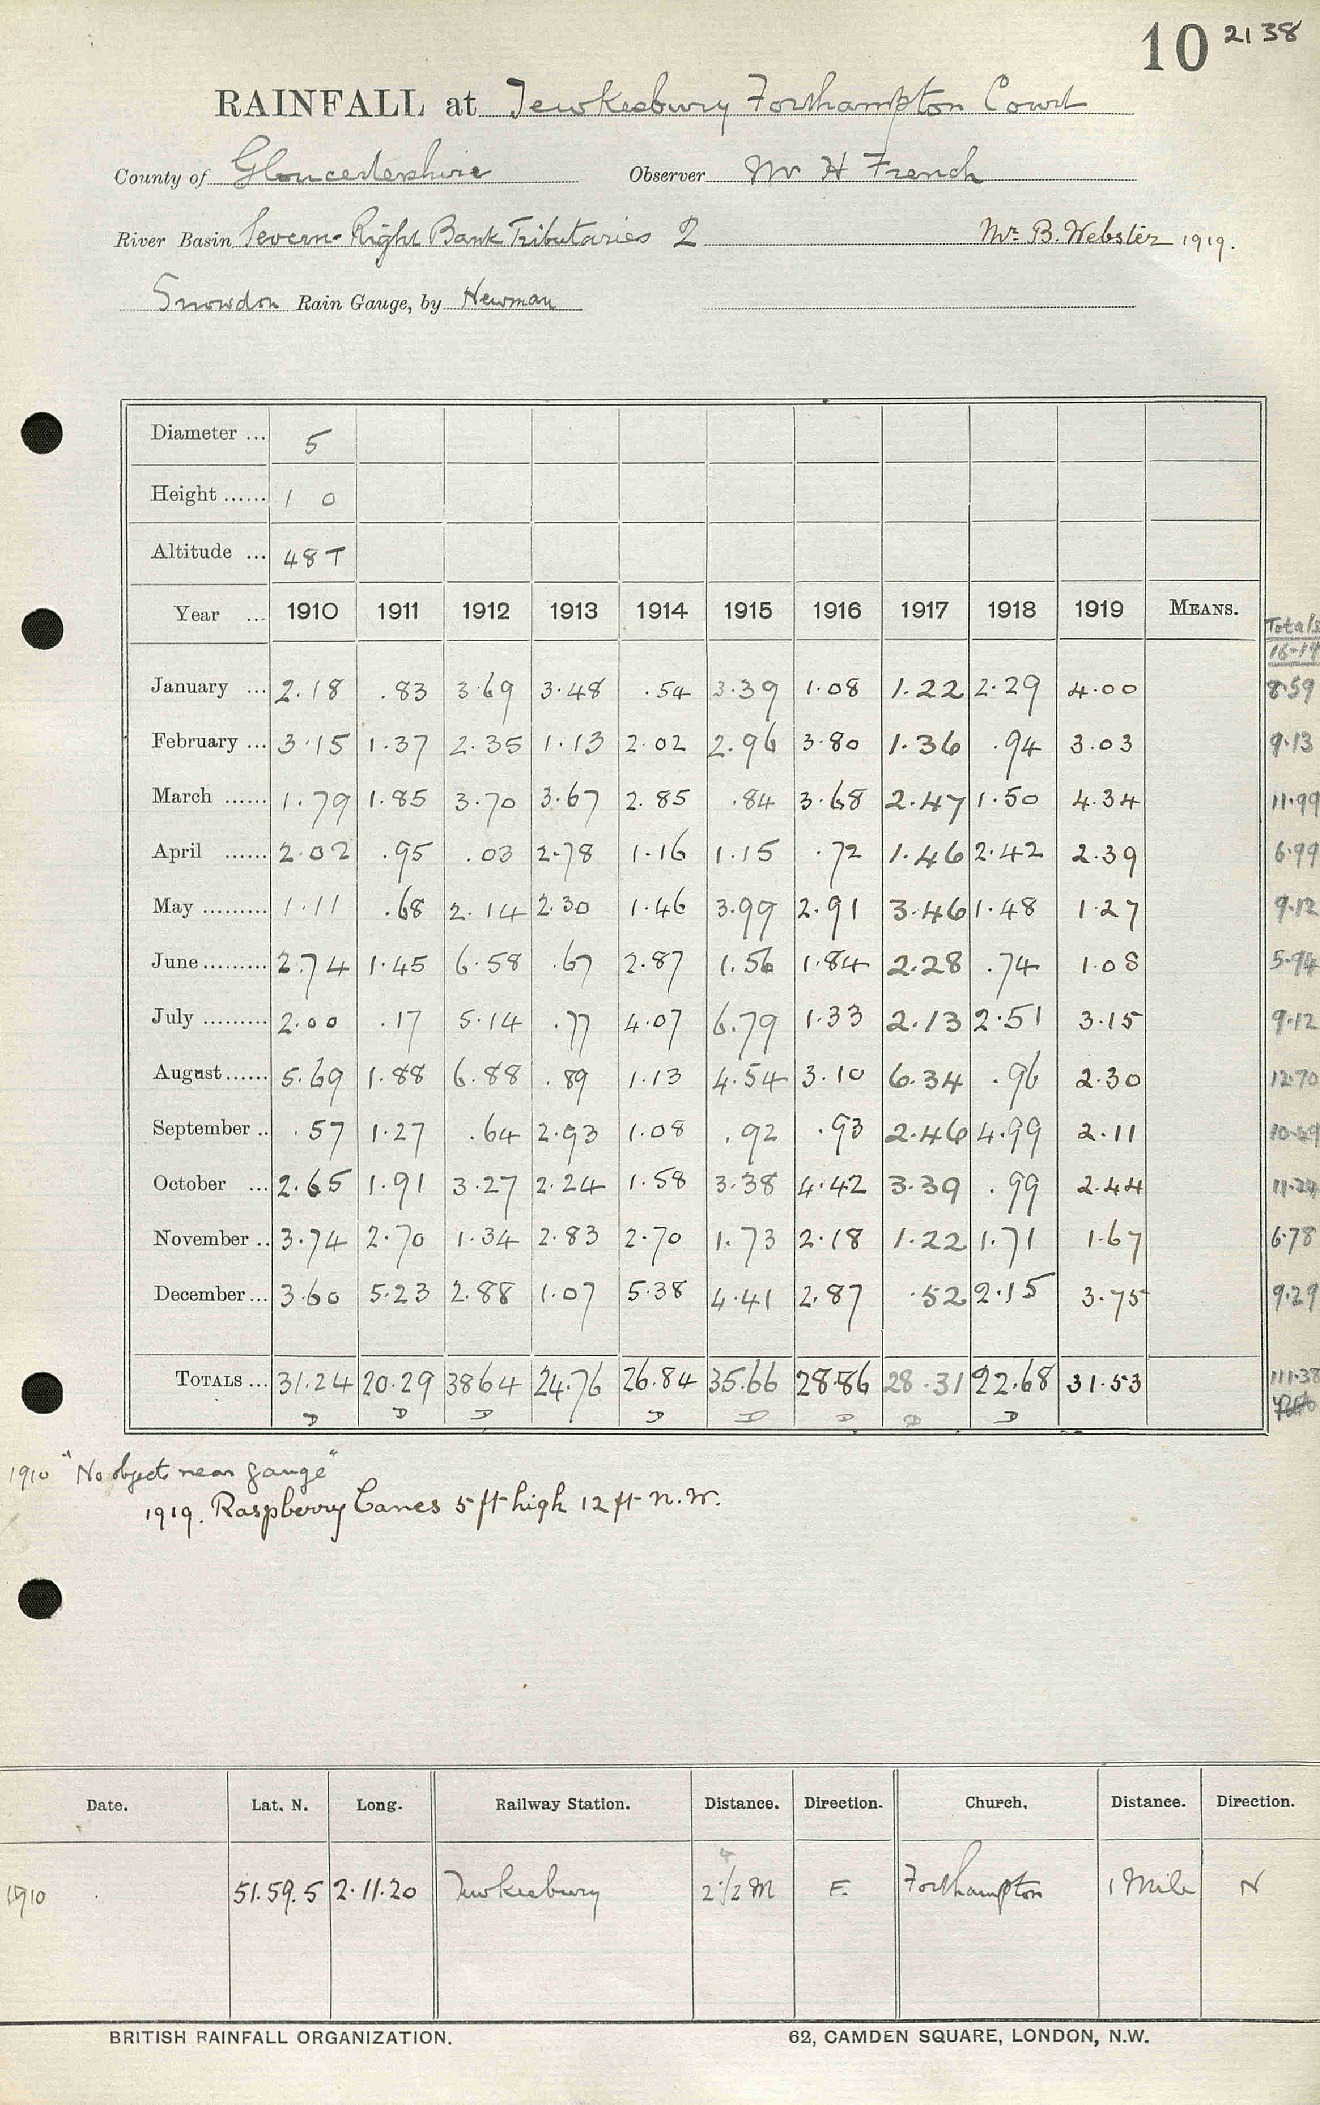 10 2138
RAINFALL at Tewkesbury Forthampton Court
County of Gloucestershire Observer Mr H French
River Basin Severn-Right Bank Tributaries 2 Mr. B. Webster 1919.
Snowdon Rain Gauge, by Newman
Diameter ... 5
Height ...... 1 0
Altitude ... 48 T
Year ... 1910 1911 1912 1913 1914 1915 1916 1917 1918 1919 MEANS. Totals
16-19
January ... 2.18 .83 3.69 3.48 .54 3.39 1.08 1.22 2.29 4.00 8.59
February ... 3.15 1.37 2.35 1.13 2.02 2.96 3.80 1.36 .94 3.03 9.13
March ...... 1.79 1.85 3.70 3.67 2.85 .84 3.68 2.47 1.50 4.34 11.99
April ...... 2.02 .95 .03 2.78 1.16 1.15 .72 1.46 2.42 2.39 6.99
May ......... 1.11 .68 2.14 2.30 1.46 3.99 2.91 3.46 1.48 1.27 9.12
June ......... 2.74 1.45 6.58 .67 2.87 1.56 1.84 2.28 .74 1.08 5.94
July ......... 2.00 .17 5.14 .77 4.07 6.79 1.33 2.13 2.51 3.15 9.12
August ...... 5.69 1.88 6.88 .89 1.13 4.54 3.10 6.34 .96 2.30 12.70
September .. .57 1.27 .64 2.93 1.08 .92 .93 2.46 4.99 2.11 10.49
October ... 2.65 1.91 3.27 2.24 1.58 3.38 4.42 3.39 .99 2.44 11.24
November .. 3.74 2.70 1.34 2.83 2.70 1.73 2.18 1.22 1.71 1.67 6.78
December ... 3.60 5.23 2.88 1.07 5.38 4.41 2.87 .52 2.15 3.75 9.29
TOTALS ... 31.24 20.29 3864 24.76 26.84 35.66 28.86 28.31 22.68 31.53 111.38
D D D D D D D D
1910 "No objects near gauge"
1919. Raspberry Canes 5 ft high 12 ft N.W.
Date. Lat. N. Long. Railway Station. Distance. Direction. Church. Distance. Direction.
4
1910 51.59.5 2.11.20 Tewkesbury 2½ M E. Forthampton 1 Mile N
BRITISH RAINFALL ORGANIZATION. 62, CAMDEN SQUARE, LONDON, N.W.